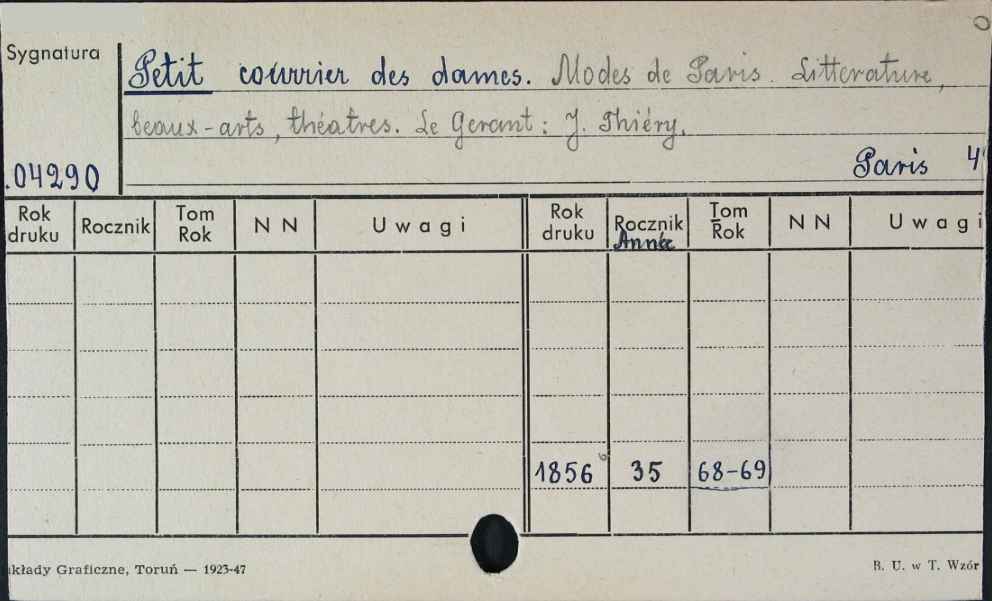 Sygnatura
Petit courrier des dames. Modes de Paris. Litterature,
beaux-arts, théatres. Le Gerant: J. Thiéry.
.04290
Paris 4°
Rok druku Rocznik Tom Rok N N Uwagi Rok druku Rocznik Année Tom Rok N N Uwagi
1856 35 68-69
kłady Graficzne, Toruń — 1923-47
B. U. w T. Wzór